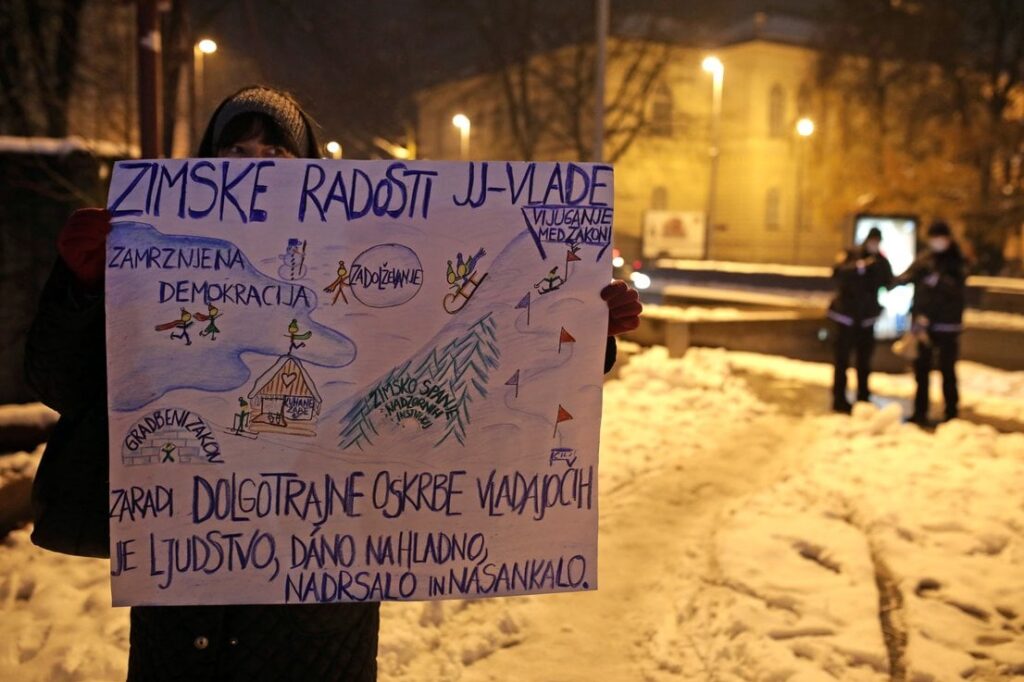 ZIMSKE RADOSTI JJ-VLADE
VIJUGANJE
MED ZAKONI
ZAMRZNJENA
DEMOKRACIJA
ZADOLŽEVANJE
ZIMSKO SPANJE
NADZORNIH
INSTITUCIJ
KUHANE
ŽABE
GRADBENI ZAKON
CILJ
ZARADI DOLGOTRAJNE OSKRBE VLADAJOČIH
JE LJUDSTVO, DÁNO NA HLADNO,
NADRSALO IN NASANKALO.